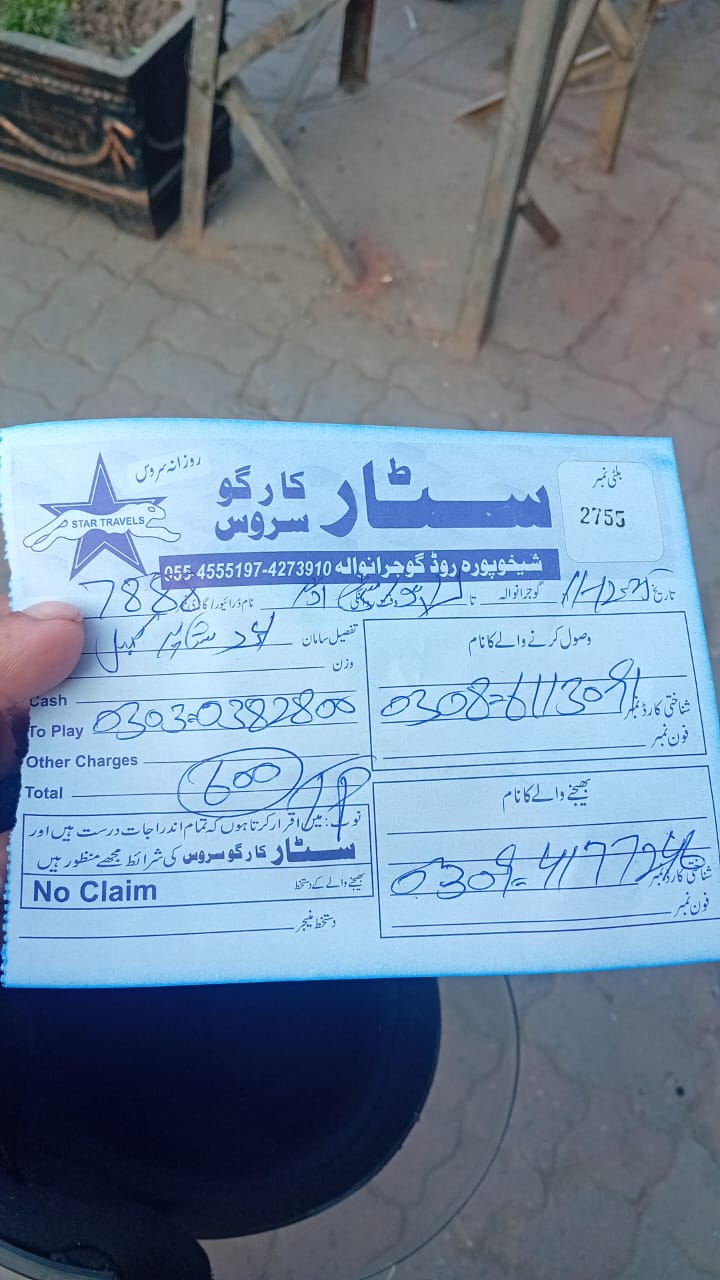 روزانہ سروس
STAR TRAVELS
سٹار کارگو سروس
بلٹی نمبر
2755
شیخوپورہ روڈ گوجرانوالہ 055-4555197-4273910
تاریخ گوجرانوالہ تا وقت روانگی نام ڈرائیور/گاڑی نمبر 7888
تفصیل سامان
وزن
Cash
To Play 0303=0382800
Other Charges
Total 600
نوٹ: میں اقرار کرتا ہوں کہ تمام اندراجات درست ہیں اور
سٹار کارگو سروس کی شرائط مجھے منظور ہیں
No Claim بھیجنے والے کے دستخط
دستخط منیجر
وصول کرنے والے کا نام
شناختی کارڈ نمبر 0308=6113091
فون نمبر
بھیجنے والے کا نام
شناختی کارڈ نمبر 0309=4177246
فون نمبر